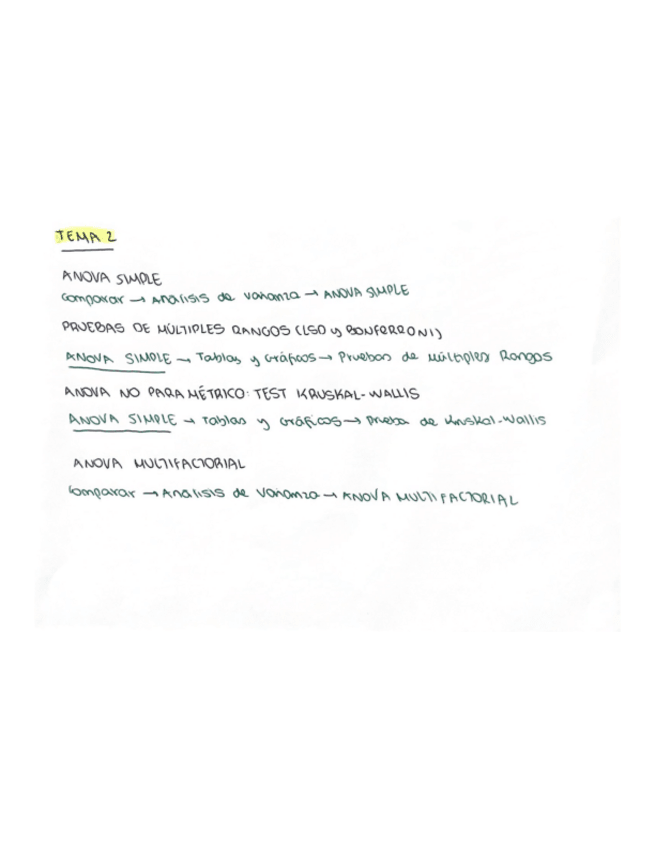 TEMA 2
ANOVA SIMPLE
Comparar → Análisis de varianza → ANOVA SIMPLE
PRUEBAS DE MÚLTIPLES RANGOS (LSD y BONFERRONI)
ANOVA SIMPLE → Tablas y Gráficos → Pruebas de Múltiples Rangos
ANOVA NO PARAMÉTRICO: TEST KRUSKAL-WALLIS
ANOVA SIMPLE → Tablas y Gráficos → Prueba de Kruskal-Wallis
ANOVA MULTIFACTORIAL
Comparar → Análisis de Varianza → ANOVA MULTIFACTORIAL